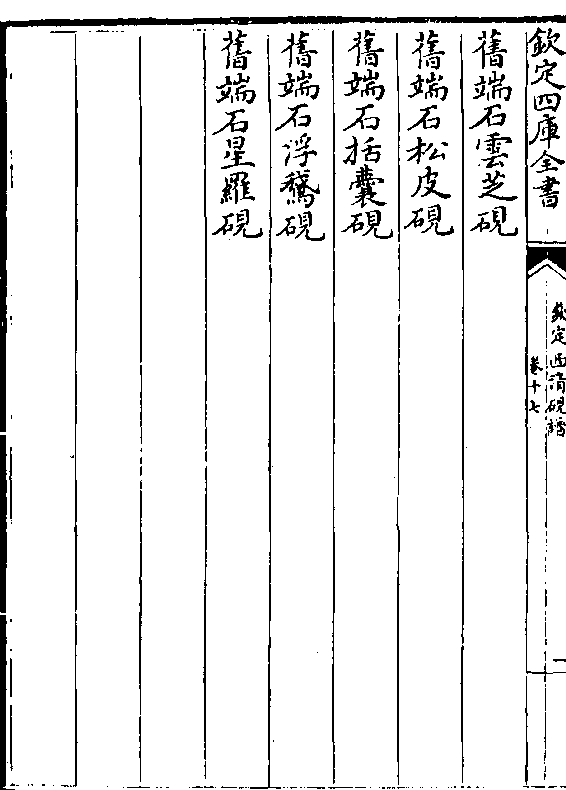 欽定四庫全書
欽定西清硯譜
卷十七
舊端石雲芝硯
舊端石松皮硯
舊端石括囊硯
舊端石浮鵞硯
舊端石星羅硯